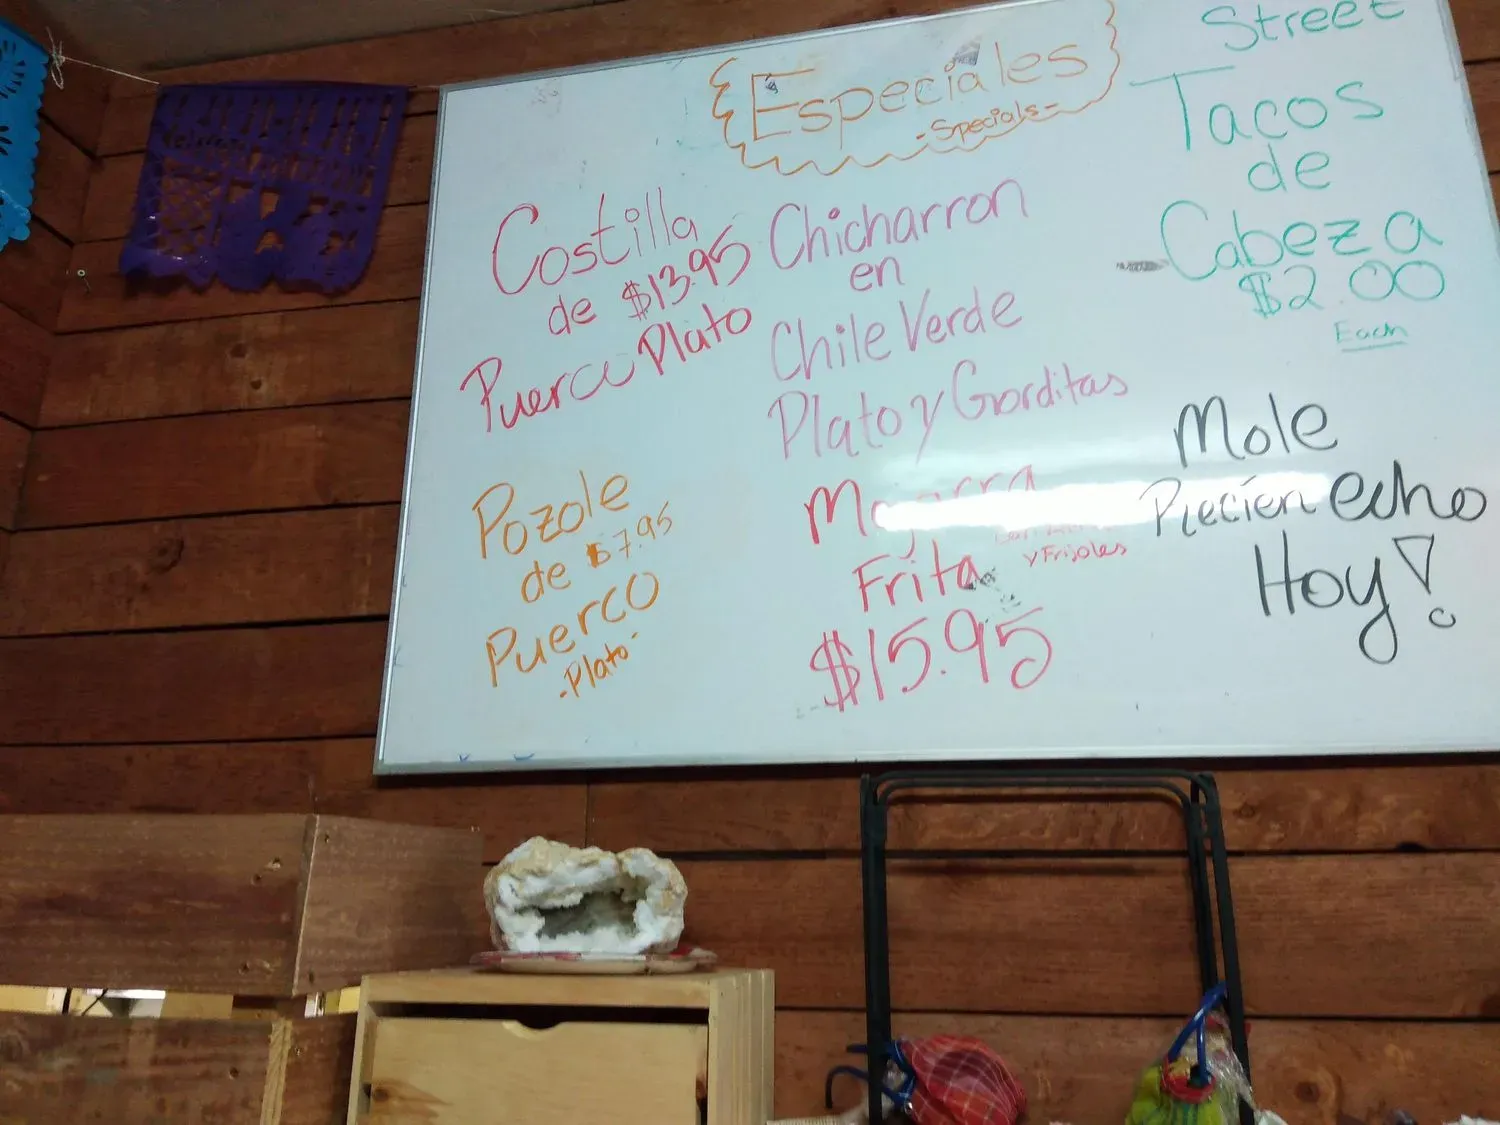 Especiales
-Specials-
Costilla
de $13.95
Puerco Plato
Pozole
de $7.95
Puerco
-Plato-
Chicharron
en
Chile Verde
Plato y Gorditas
Mojarra
y Frijoles
Frita
$15.95
Street
Tacos
de
Cabeza
$2.00
Each
Mole
Recien echo
Hoy!